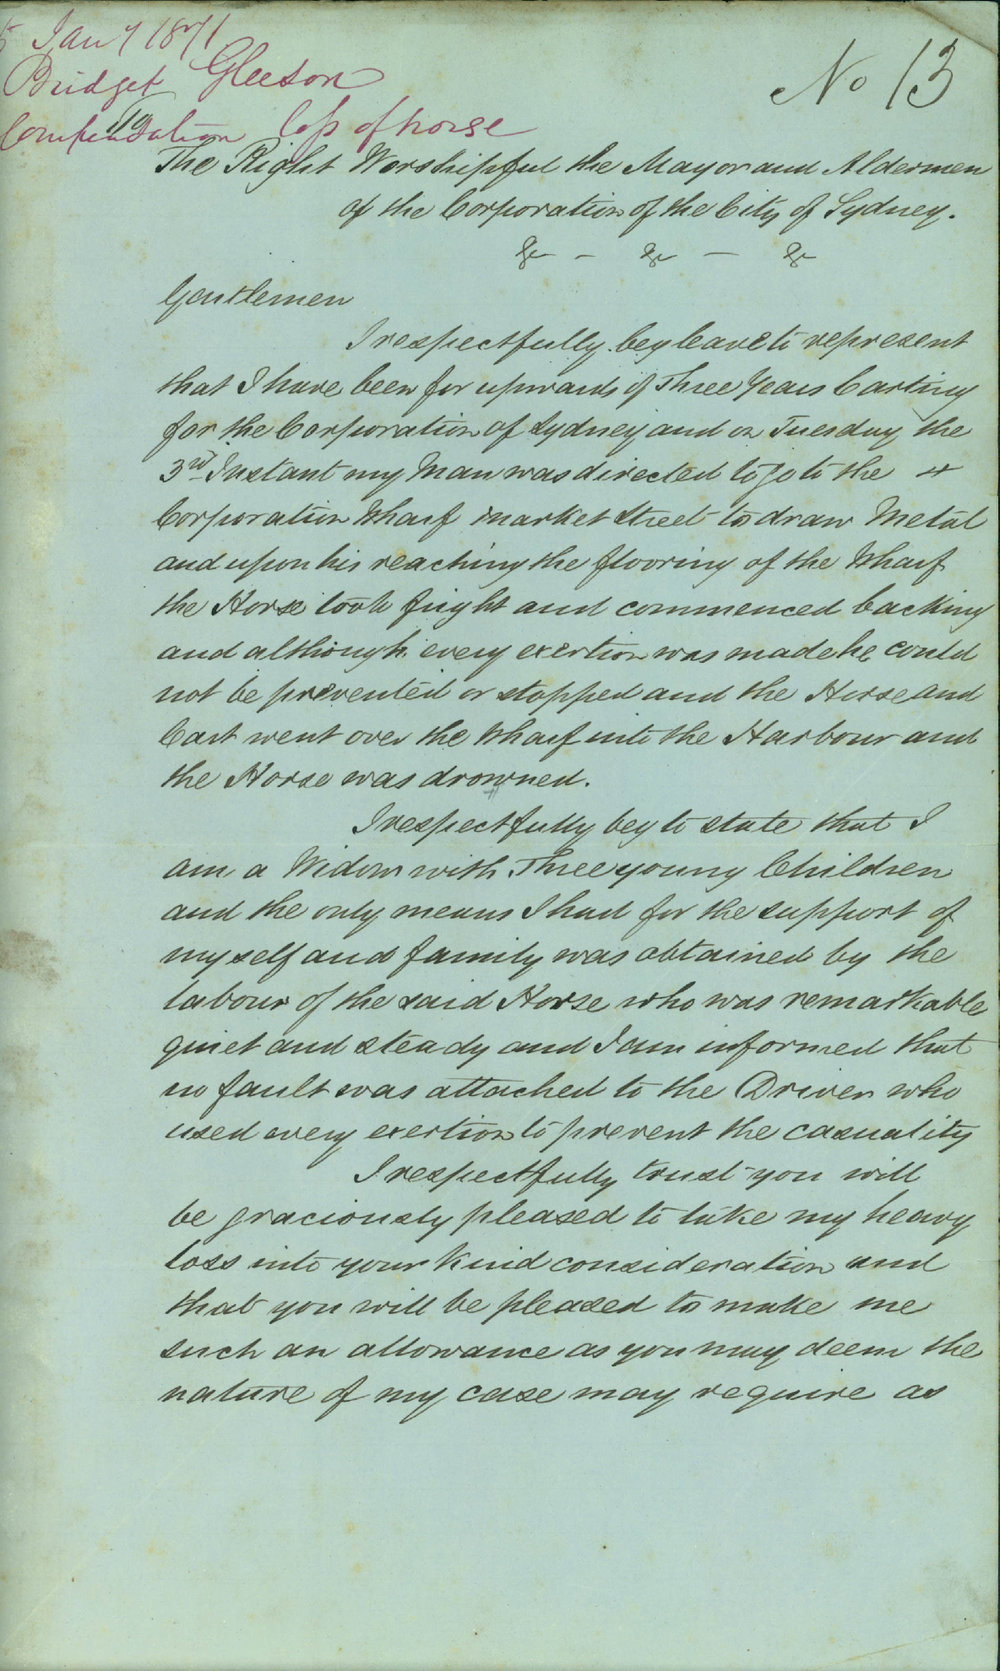 5 Jany 1871
Bridget Gleeson
Compensation loss of horse
No 13
To
The Right Worshipful the Mayor and Aldermen
of the Corporation of the City of Sydney.
&c - &c - &c
Gentlemen
I respectfully beg leave to represent
that I have been for upwards of Three Years Carting
for the Corporation of Sydney and on Tuesday the
3rd Instant my Man was directed to go to the
Corporation Wharf Market Street to draw Metal
and upon his reaching the flooring of the Wharf
the Horse took fright and commenced backing
and although every exertion was made he could
not be prevented or stopped and the Horse and
Cart went over the Wharf into the Harbour and
the Horse was drowned.
I respectfully beg to state that I
am a Widow with Three young Children
and the only means I had for the support of
myself and family was obtained by the
labour of the said Horse who was remarkable
quiet and steady and I am informed that
no fault was attached to the Driver who
used every exertion to prevent the casuality
I respectfully trust you will
be graciously pleased to take my heavy
loss into your kind consideration and
that you will be pleased to make me
such an allowance as you may deem the
nature of my case may require as